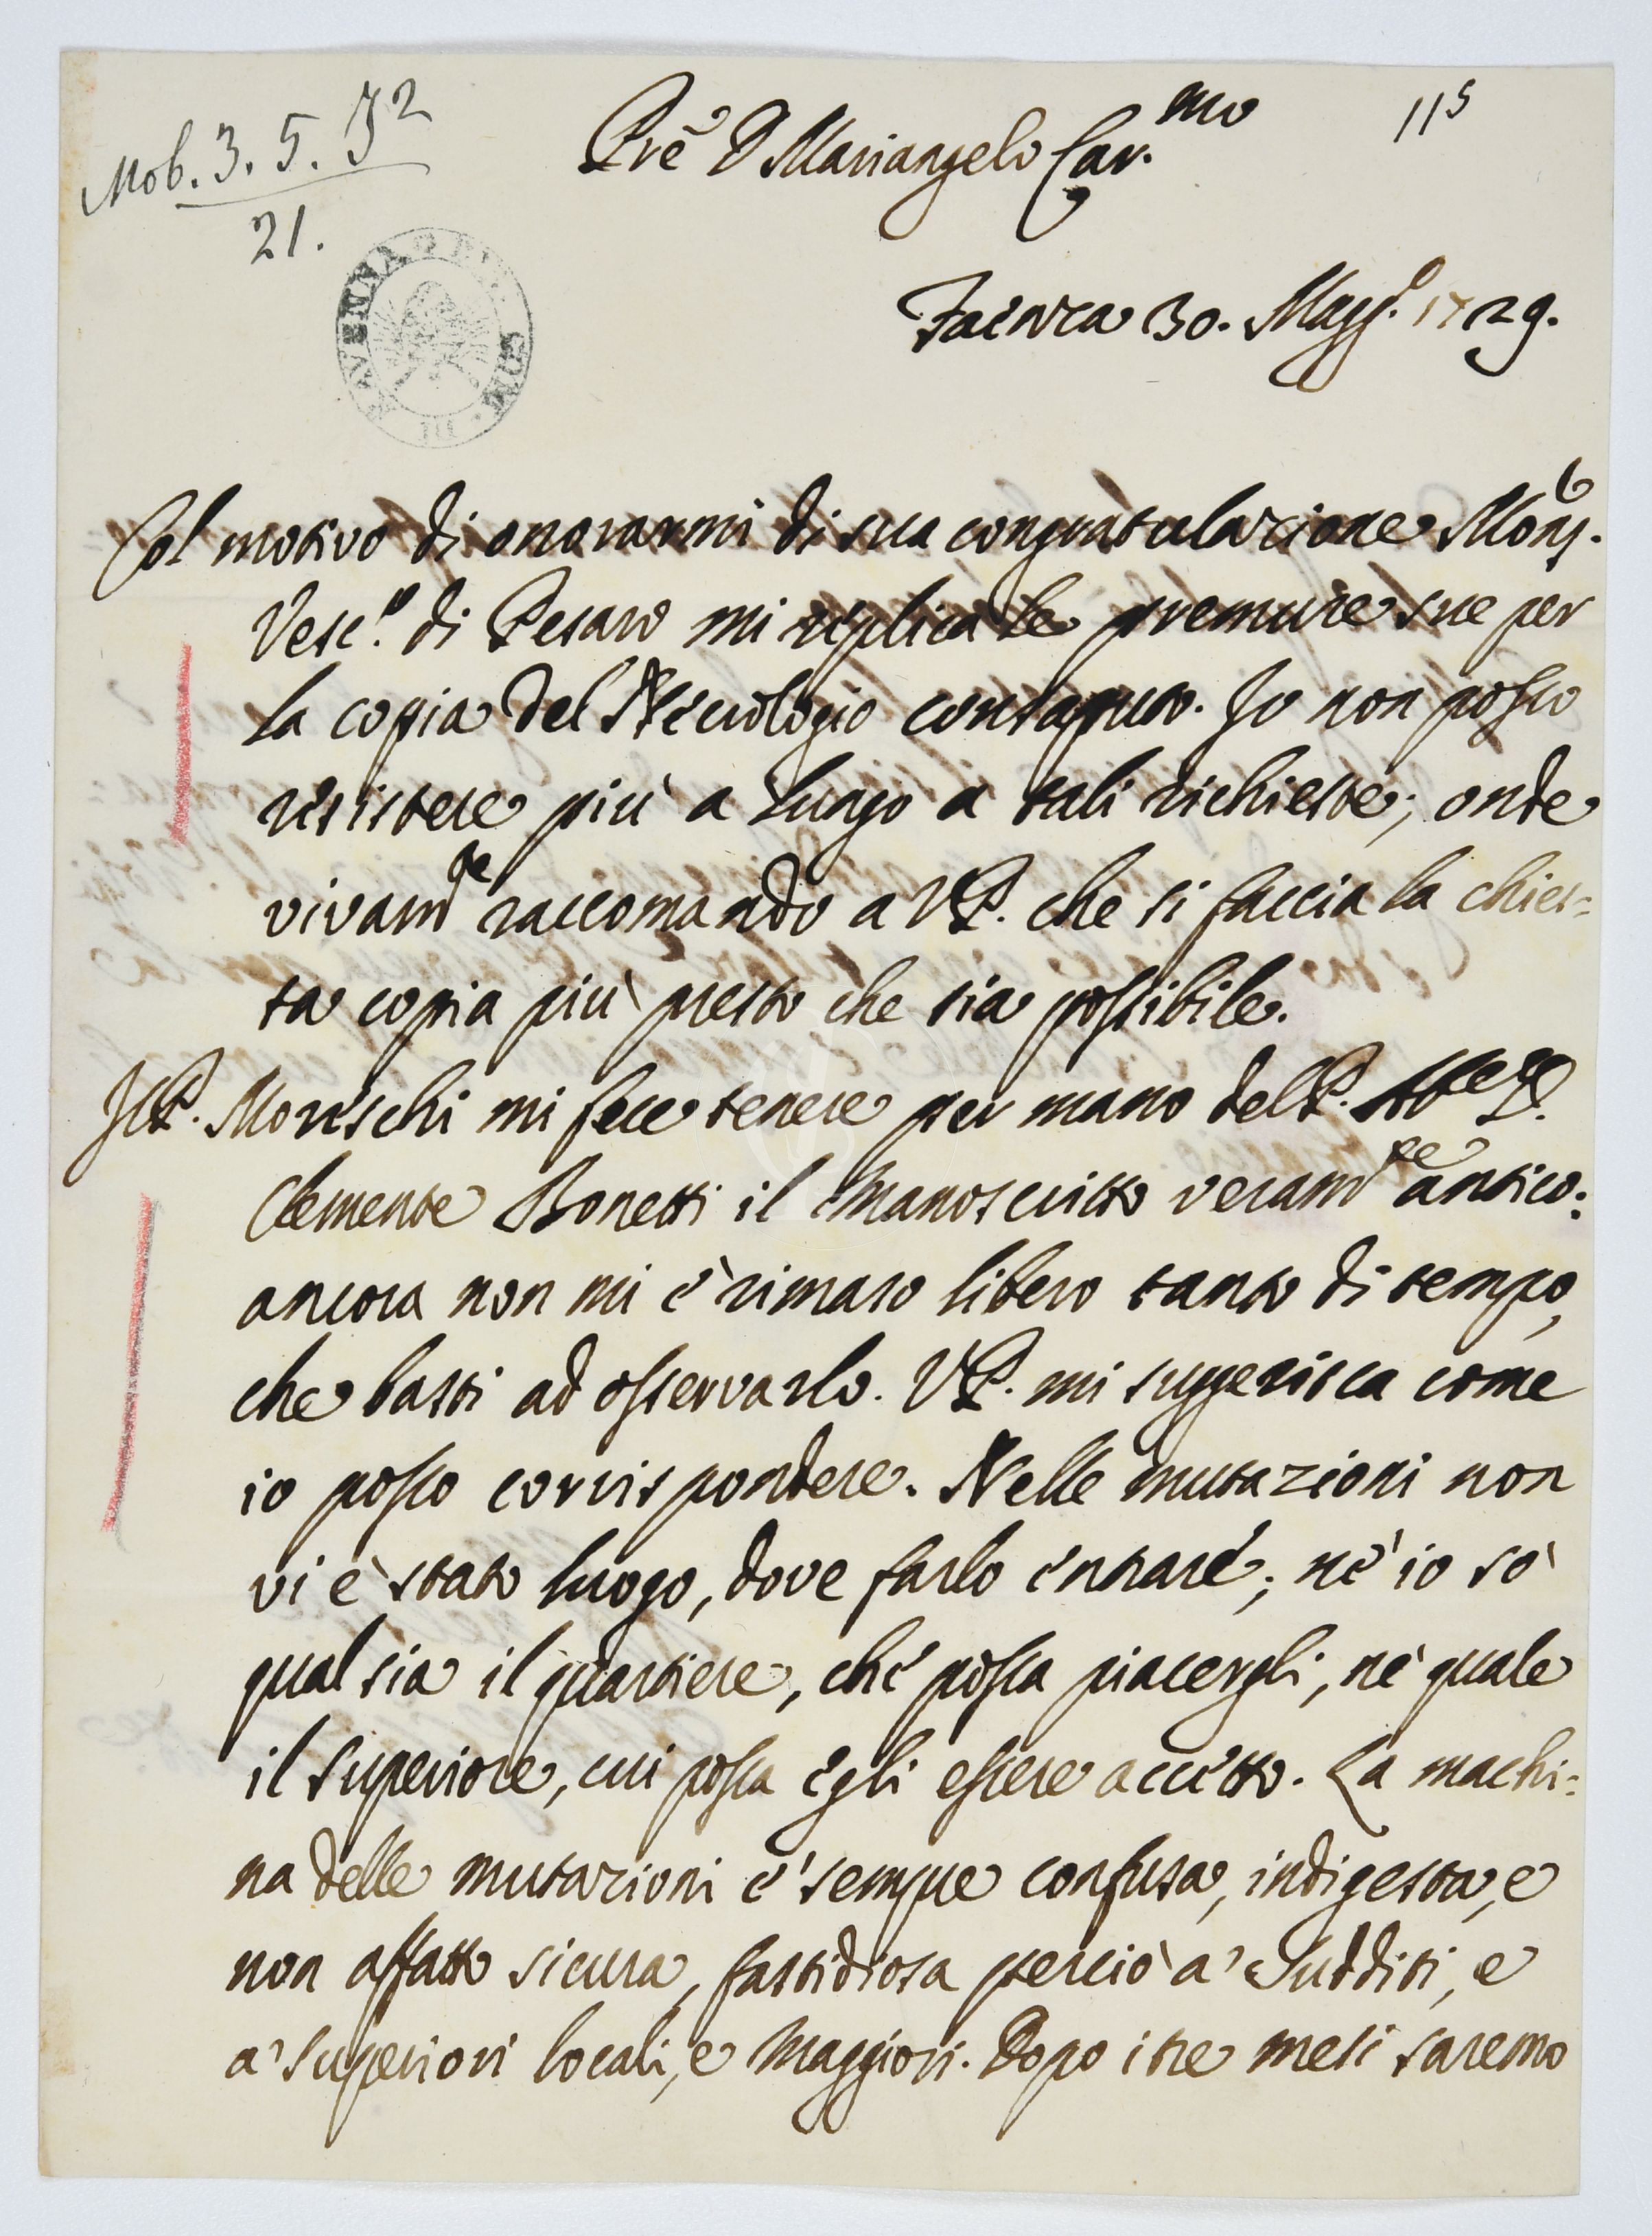 Mob. 3. 5. I2
21.
115
Prẽ D Mariangelo Car.mo
Faenza 30. Magg.o 1729.
Col motivo di onorarmi di sua congratulazione Monsr.
Vesc.o di Pesaro mi replica le premure sue per
la copia del Necrologio contaputo. Io non posso
resistere più a lungo a tali richieste; onde
vivamte raccomando a VP. che si faccia la chies=
ta copia più presto che sia possibile.
Il P. Moreschi mi fece tenere per mano del P. Abte D.
Clemente Bonetti il Manoscritto veramte antico:
ancora non mi è rimaso libero tanto di tempo,
che basti ad osservarlo. VP. mi suggerisca come
io posso corrispondere. Nelle mutazioni non
vi è stato luogo, dove farlo entrare; nè io sò
qual sia il quartiere, che possa piacergli, nè quale
il Superiore, cui possa egli essere accetto. La machi=
na delle mutazioni è sempre confusa, indigesta, e
non affatto sicura, fastidiosa perciò a' Sudditi, e
a' Superiori locali, e Maggiori. Dopo i tre mesi saremo